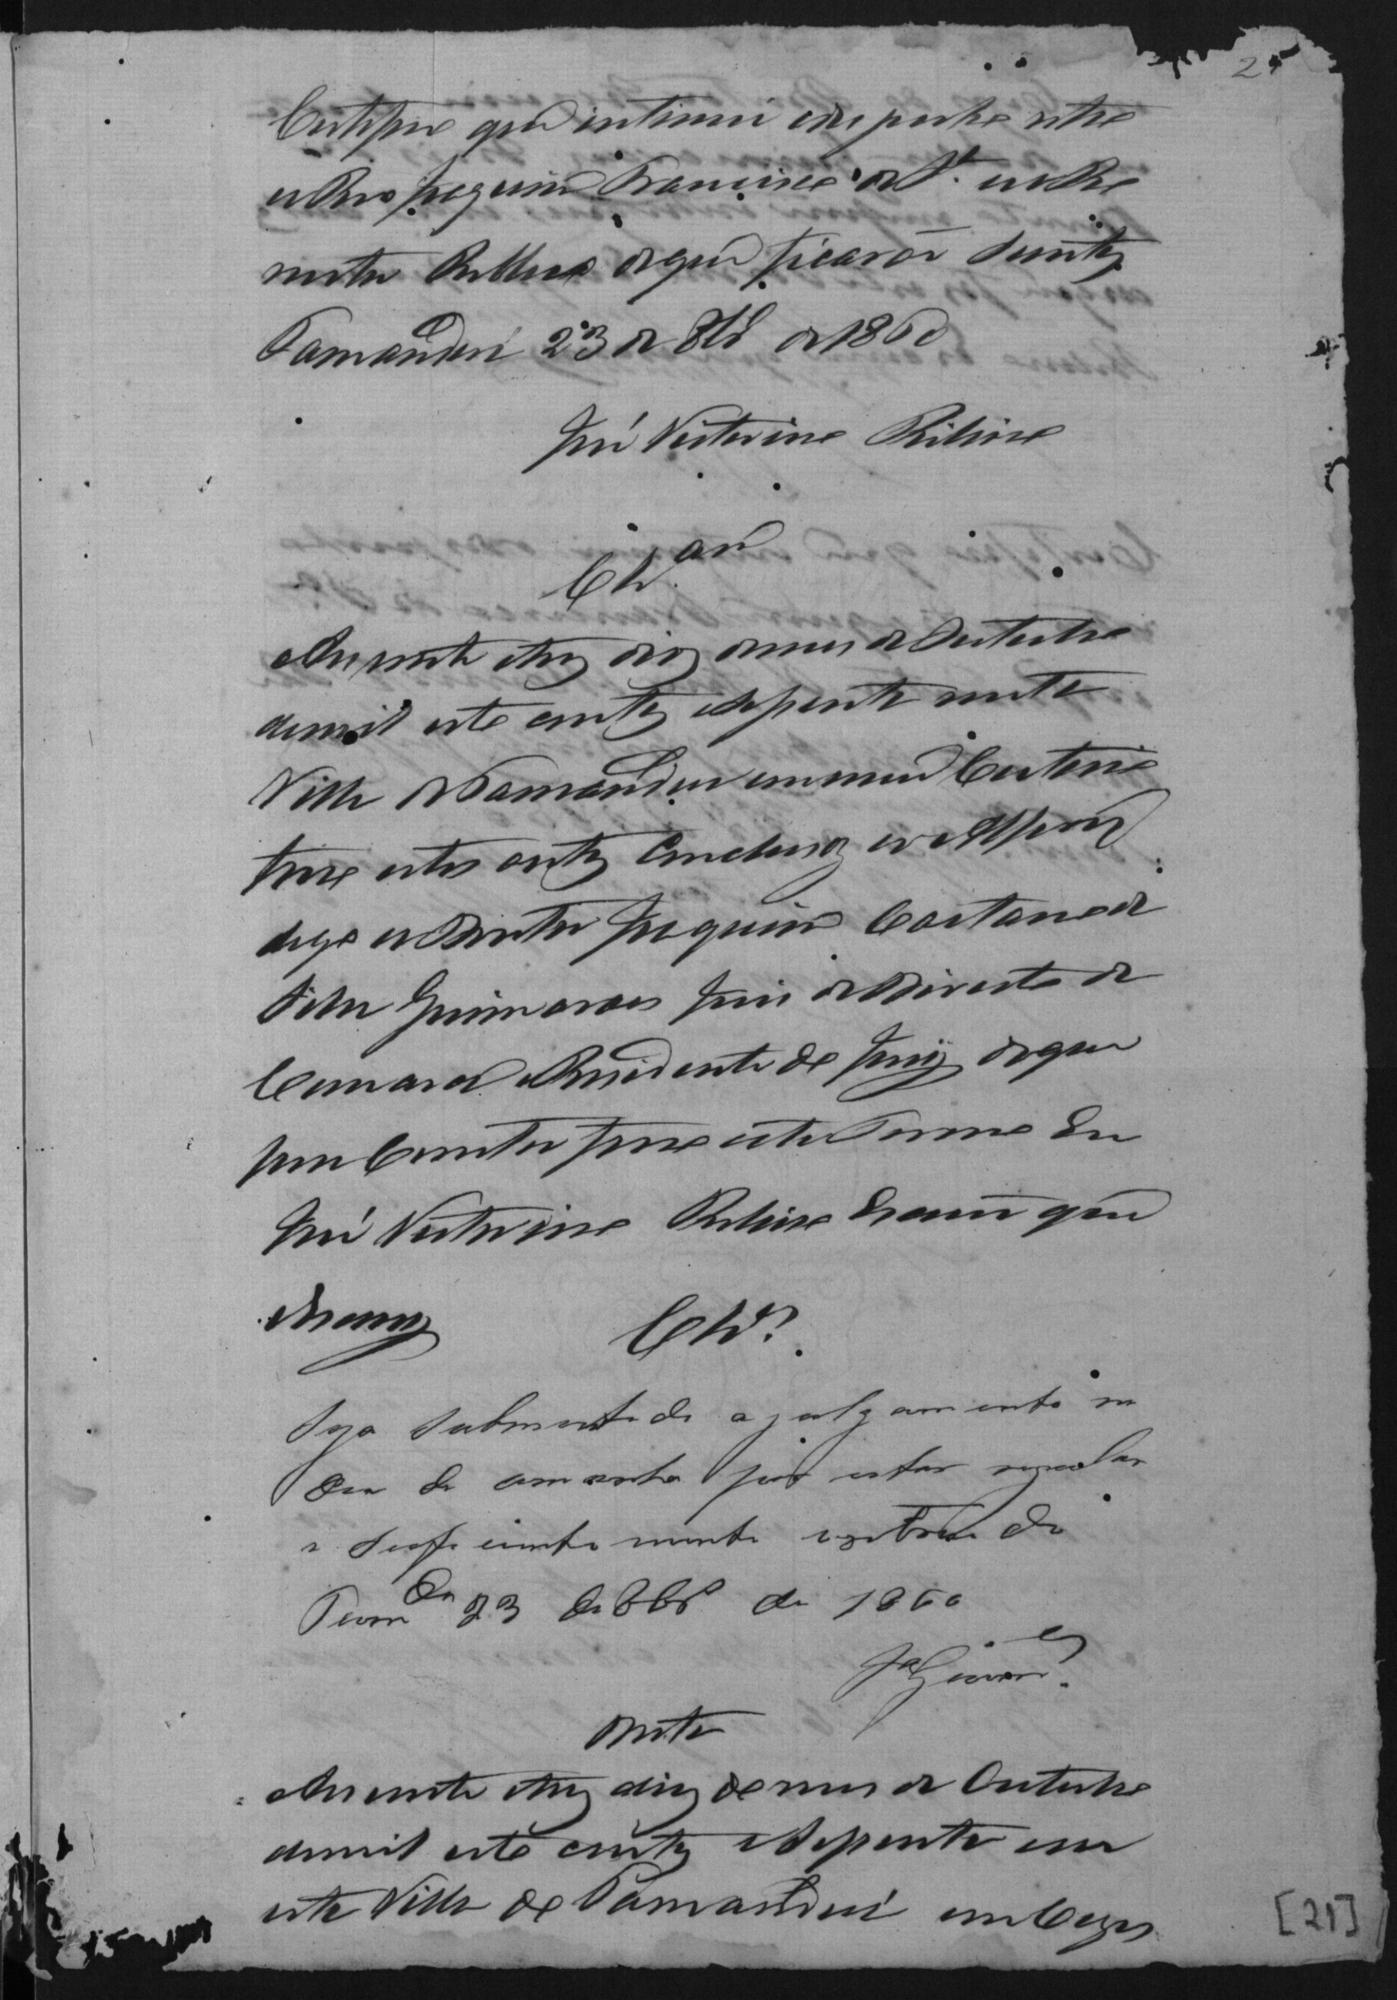 2
Certifico que intimei o despacho retro
ao Reo Joaquim Francisco de Sta. e ao Pro
motor Publico do que ficarão scientes
Tamanduá 23 de 8bro de 1860
José Victorino Ribeiro
Clzam
Aos vinte e tres dias do mes de Outubro
de mil oito centos e sessenta nesta
Villa de Tamanduá em meu Cartorio
faço estes autos conclusos ao
digo ao Doutor Joaquim Caetano da
Silva Guimarães Juiz de Direito da
Comarca e Presidente do Jury do que
para constar faço este Termo Eu
José Victorino Ribeiro Escrivão que
escrevy
Clzos
Seja submettido a julgamento no
dia de amanhã por estar regular
e sufficientemente instruido
Tamdua 23 de 8bro de 1860
Guimes
Data
Aos vinte e tres dias do mes de Outubro
de mil oito centos e sessenta em
esta Villa de Tamanduá em Cazas
[21]